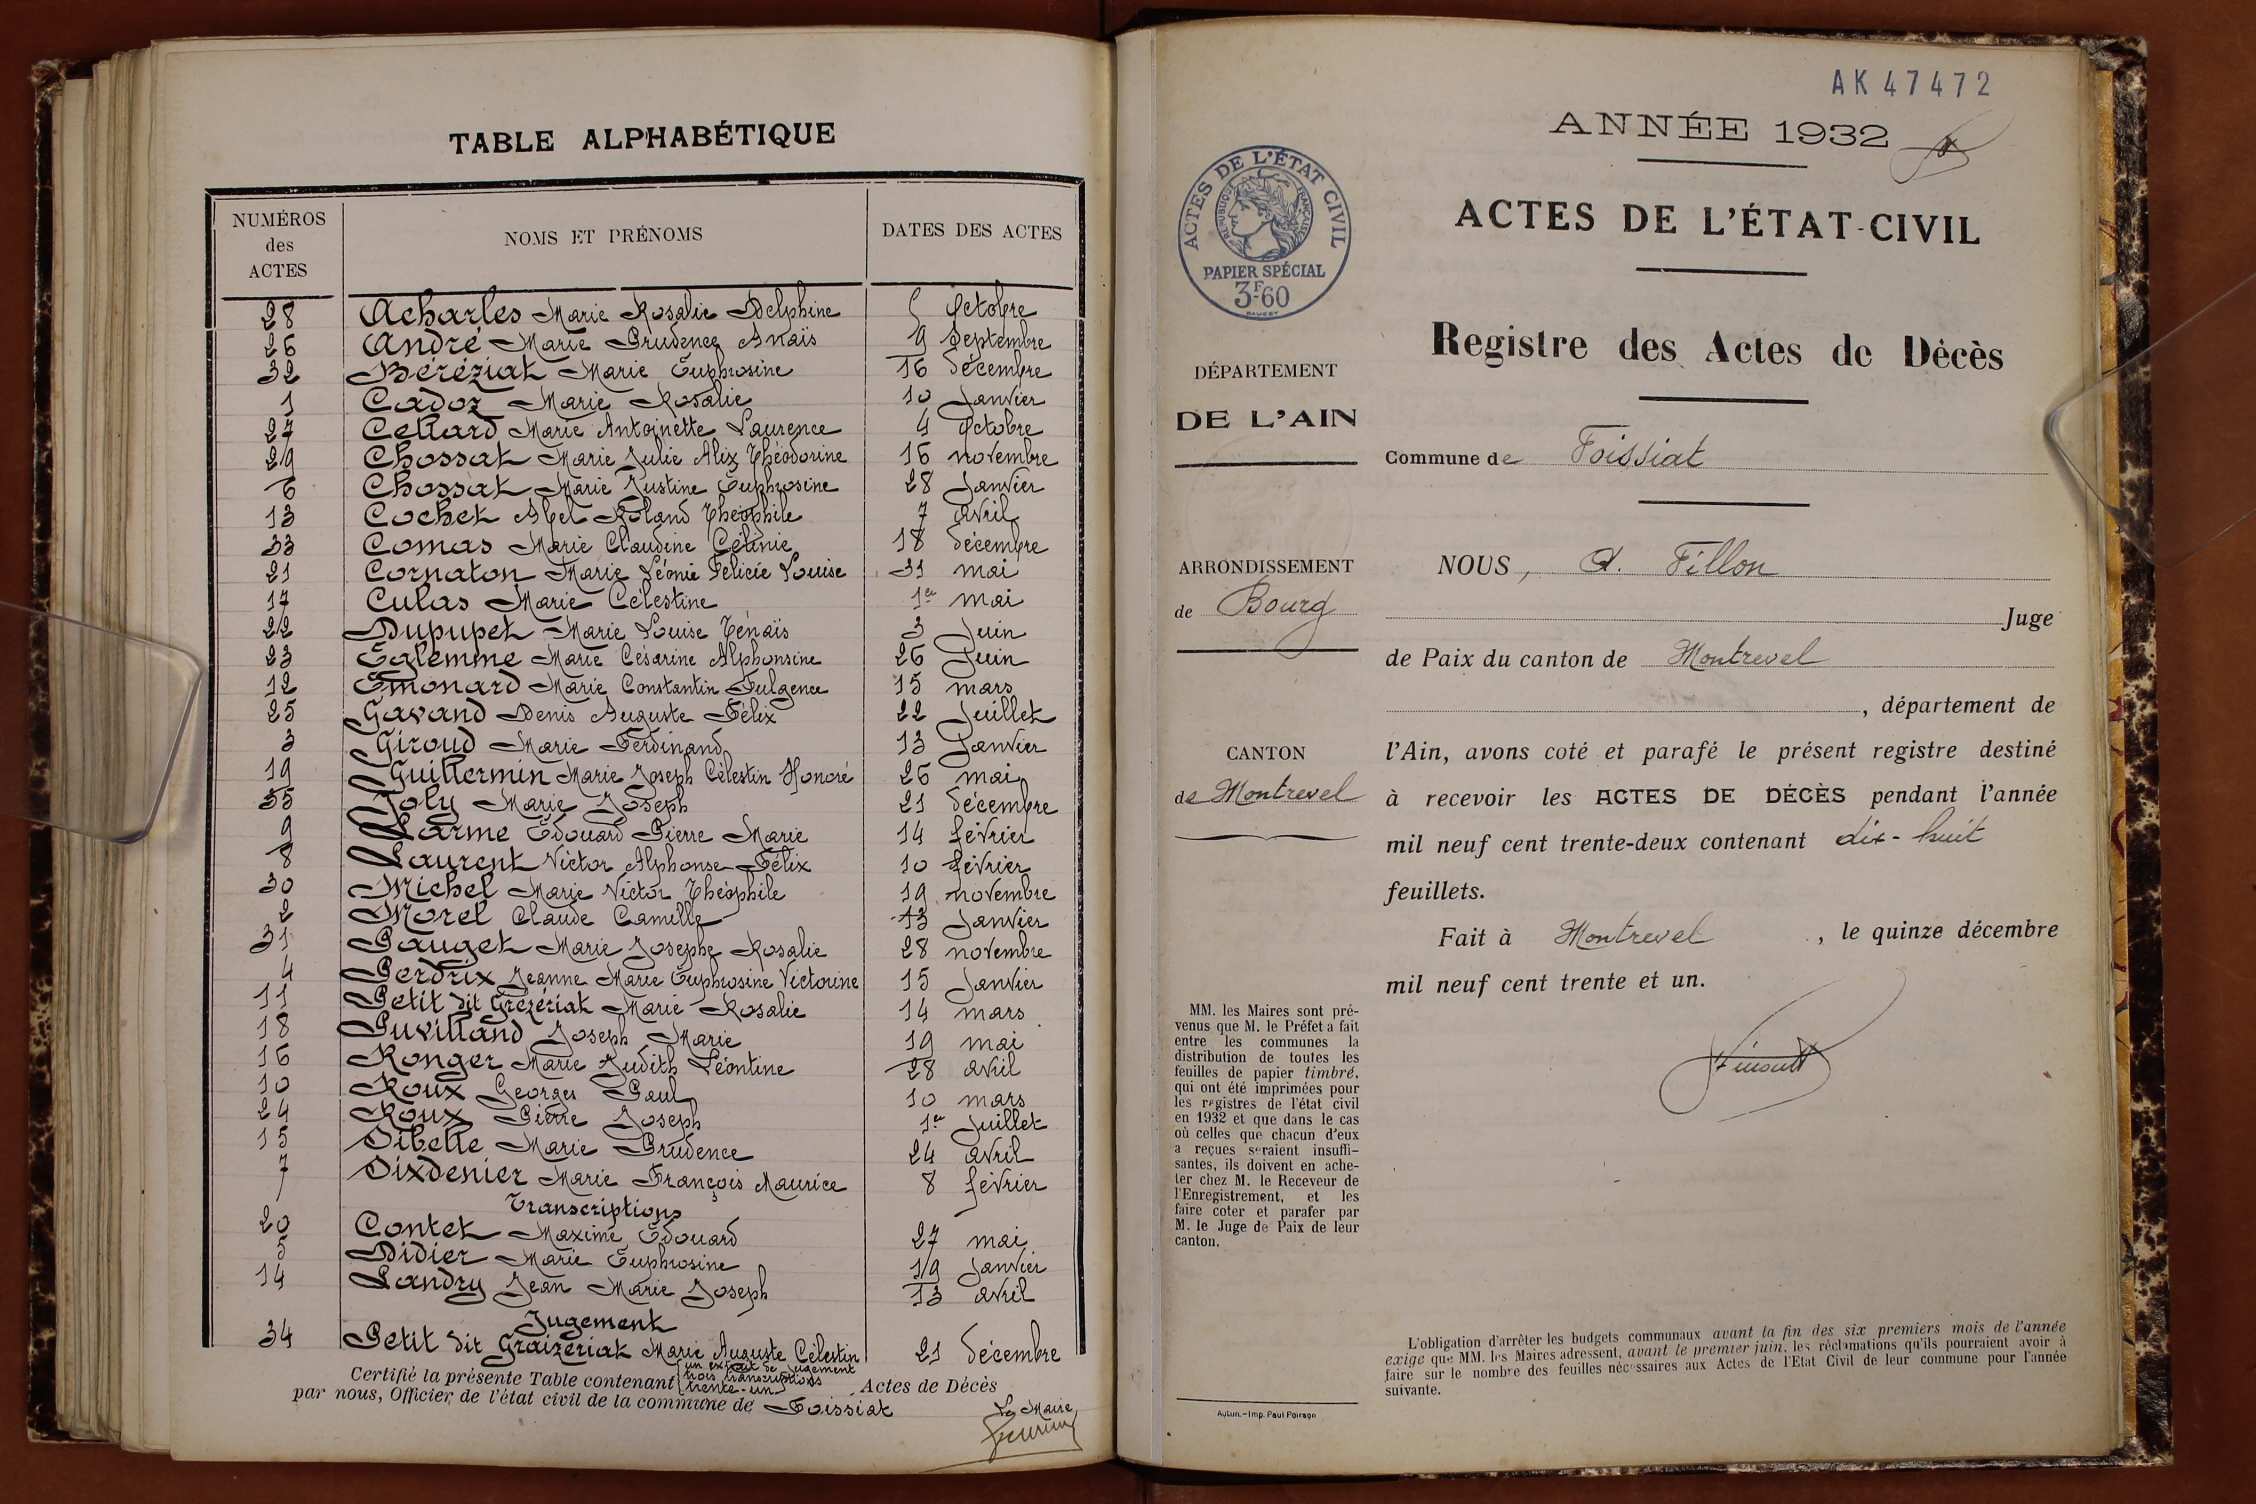 TABLE ALPHABÉTIQUE
NUMÉROS des ACTES | NOMS ET PRÉNOMS | DATES DES ACTES
28 Acharles Marie Rosalie Delphine 5 Octobre
26 André Marie Prudence Anaïs 9 Septembre
32 Béréziat Marie Euphrosine 16 décembre
1 Cadoz Marie Rosalie 10 Janvier
27 Cellard Marie Antoinette Laurence 4 Octobre
29 Chossat Marie Julie Alix Théodorine 16 novembre
6 Chossat Marie Justine Euphrosine 28 Janvier
13 Cochet Abel Roland Théophile 7 avril
33 Comas Marie Claudine Célinie 18 décembre
21 Cornaton Marie Léonie Félicie Louise 31 mai
17 Culas Marie Célestine 1er mai
22 Dupupet Marie Louise Ténaïs 3 Juin
23 Eglemme Marie Césarine Alphonsine 26 Juin
12 Emonard Marie Constantin Fulgence 15 mars
25 Gavand Denis Auguste Félix 22 Juillet
3 Giroud Marie Ferdinand 13 Janvier
19 Guillermin Marie Joseph Célestin Honoré 26 mai
35 Joly Marie Joseph 21 décembre
9 Larme Edouard Pierre Marie 14 février
8 Laurent Victor Alphonse Félix 10 février
30 Michel Marie Victor Théophile 19 novembre
2 Morel Claude Camille 13 Janvier
31 Pauget Marie Josephe Rosalie 28 novembre
4 Perdrix Jeanne Marie Euphrosine Victorine 15 Janvier
11 Petit dit Grezériat Marie Rosalie 14 mars
18 Puvilland Joseph Marie 19 mai
16 Ronger Marie Judith Léontine 28 avril
10 Roux Georges Paul 10 mars
24 Roux Pierre Joseph 1er Juillet
15 Sibelle Marie Prudence 24 avril
7 Sixdenier Marie François Maurice 8 février
Transcriptions
20 Contet Maxime Edouard 27 mai
5 Didier Marie Euphrosine 19 Janvier
14 Landry Jean Marie Joseph 13 avril
Jugement
34 Petit dit Graizeriat Marie Auguste Célestin 21 décembre
un extrait de Jugement
trois transcriptions
Certifié la présente Table contenant trente-un Actes de Décès
par nous, Officier de l'état civil de la commune de Foissiat
Le Maire
AK 47472
ANNÉE 1932
ACTES DE L'ÉTAT-CIVIL
ACTES DE L'ÉTAT CIVIL
RÉPUBLIQUE FRANÇAISE
PAPIER SPÉCIAL
3F.60
Registre des Actes de Décès
DÉPARTEMENT
DE L'AIN
Commune de Foissiat
ARRONDISSEMENT
de Bourg
CANTON
de Montrevel
NOUS, A. Fillon
Juge
de Paix du canton de Montrevel
, département de
l'Ain, avons coté et parafé le présent registre destiné
à recevoir les ACTES DE DÉCÈS pendant l'année
mil neuf cent trente-deux contenant dix-huit
feuillets.
Fait à Montrevel, le quinze décembre
mil neuf cent trente et un.
MM. les Maires sont pré-
venus que M. le Préfet a fait
entre les communes la
distribution de toutes les
feuilles de papier timbré,
qui ont été imprimées pour
les registres de l'état civil
en 1932 et que dans le cas
où celles que chacun d'eux
a reçues seraient insuffi-
santes, ils doivent en ache-
ter chez M. le Receveur de
l'Enregistrement, et les
faire coter et parafer par
M. le Juge de Paix de leur
canton.
L'obligation d'arrêter les budgets communaux avant la fin des six premiers mois de l'année
exige que MM. les Maires adressent, avant le premier juin, les réclamations qu'ils pourraient avoir à
faire sur le nombre des feuilles nécessaires aux Actes de l'Etat Civil de leur commune pour l'année
suivante.
Autun.-Imp. Paul Poirson